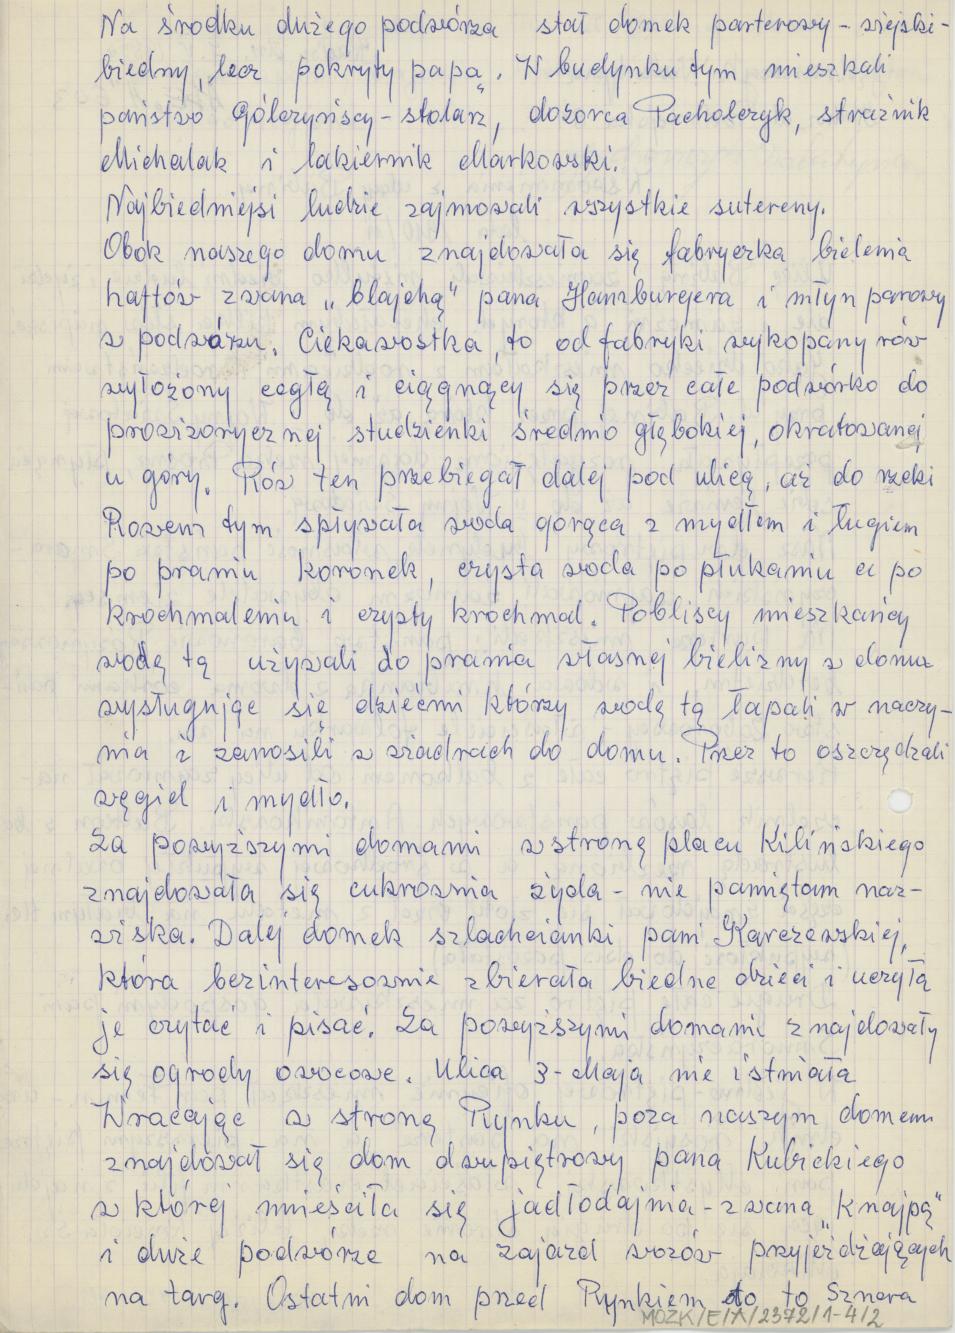 Na środku dużego podwórza stał domek parterowy - wiejski -
biedny, lecz pokryty papą. W budynku tym mieszkali
państwo Gólczyńscy - stolarz, dozorca Pacholczyk, strażnik
Michalak i lakiernik Markowski.
Najbiedniejsi ludzie zajmowali wszystkie sutereny.
Obok naszego domu znajdowała się fabryczka bielenia
haftów zwana „blajchą" pana Hamburgera i młyn parowy
w podwórzu. Ciekawostka, to od fabryki wykopany rów
wyłożony cegłą i ciągnący się przez całe podwórko do
prowizorycznej studzienki średnio głębokiej, okratowanej
u góry. Rów ten przebiegał dalej pod ulicą, aż do rzeki
Rowem tym spływała woda gorąca z mydłem i ługiem
po praniu koronek, czysta woda po płukaniu a po
krochmaleniu i czysty krochmal. Pobliscy mieszkańcy
wodę tą używali do prania własnej bielizny w domu
wysługując się dziećmi którzy wodę tą łapali w naczy-
nia i zanosili w wiadrach do domu. Przez to oszczędzali
węgiel i mydło.
Za powyższymi domami w stronę placu Kilińskiego
znajdowała się cukrownia żyda - nie pamiętam naz-
wiska. Dalej domek szlachcianki pani Karczewskiej,
która bezinteresownie zbierała biedne dzieci i uczyła
je czytać i pisać. Za powyższymi domami znajdowały
się ogrody owocowe. Ulica 3-Maja nie istniała
Wracając w stronę Rynku, poza naszym domem
znajdował się dom dwupiętrowy pana Kubickiego
w której mieściła się jadłodajnia - zwana „Knajpą"
i duże podwórze na zajazd wozów przyjeżdżających
na targ. Ostatni dom przed Rynkiem to to Sznera
MOZK/E/A/2372/1-4/2